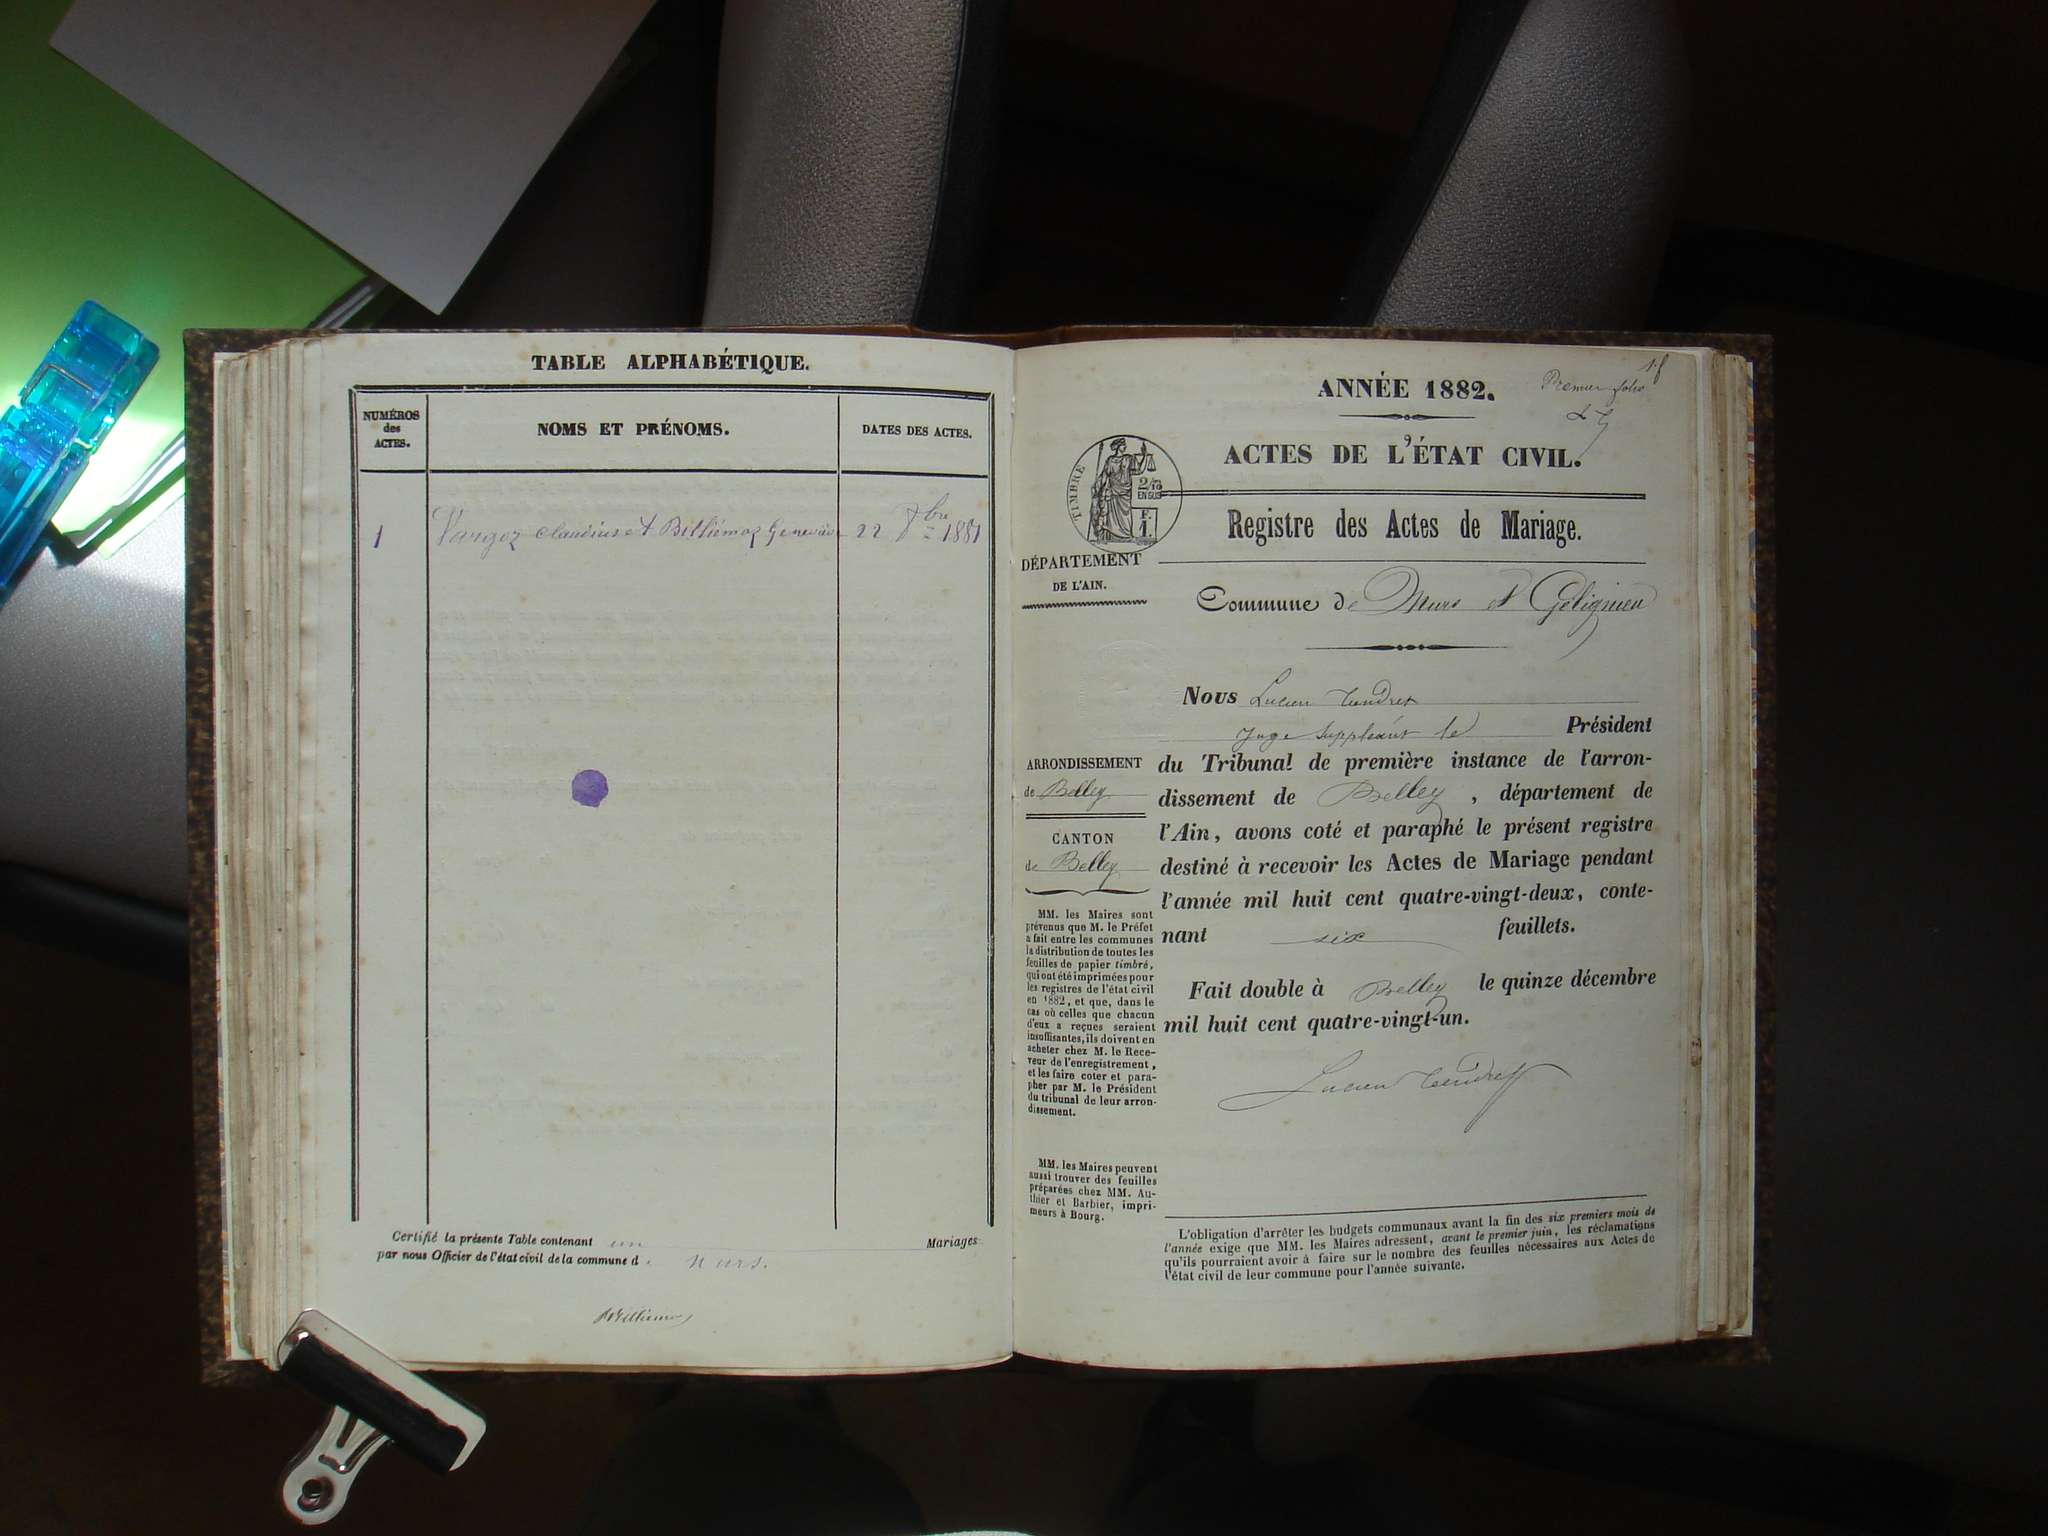 TABLE ALPHABÉTIQUE.
NUMÉROS
des
ACTES.
NOMS ET PRÉNOMS.
DATES DES ACTES.
1 Vangoz Claudius et Billiémaz Geneviève 22 8bre 1881
Certifié la présente Table contenant un Mariages
par nous Officier de l'état civil de la commune d. Murs.
Billiemaz
1.f
Premier folio
L T
ANNÉE 1882.
ACTES DE L'ÉTAT CIVIL.
TIMBRE
2/10
EN SUS
F.
1.
Registre des Actes de Mariage.
DÉPARTEMENT
DE L'AIN.
Commune de Murs et Gélignieu
Nous Lucien Tendret
Juge suppléant le Président
du Tribunal de première instance de l'arron-
dissement de Belley, département de
l'Ain, avons coté et paraphé le présent registre
destiné à recevoir les Actes de Mariage pendant
l'année mil huit cent quatre-vingt-deux, conte-
nant six feuillets.
Fait double à Belley le quinze décembre
mil huit cent quatre-vingt-un.
Lucien Tendret
ARRONDISSEMENT
de Belley
CANTON
de Belley
MM. les Maires sont
prévenus que M. le Préfet
a fait entre les communes
la distribution de toutes les
feuilles de papier timbré,
qui ont été imprimées pour
les registres de l'état civil
en 1882, et que, dans le
cas où celles que chacun
d'eux a reçues seraient
insuffisantes, ils doivent en
acheter chez M. le Rece-
veur de l'enregistrement,
et les faire coter et para-
pher par M. le Président
du tribunal de leur arron-
dissement.
MM. les Maires peuvent
aussi trouver des feuilles
préparées chez MM. Au-
thier et Barbier, impri-
meurs à Bourg.
L'obligation d'arrêter les budgets communaux avant la fin des six premiers mois de
l'année exige que MM. les Maires adressent, avant le premier juin, les réclamations
qu'ils pourraient avoir à faire sur le nombre des feuilles nécessaires aux Actes de
l'état civil de leur commune pour l'année suivante.